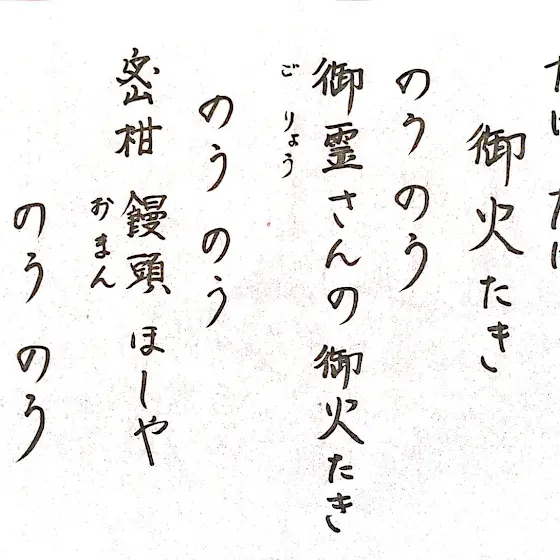 御火たき
のうのう
御霊さんの御火たき
ごりょう
のうのう
密柑 饅頭 ほしや
おまん
のうのう